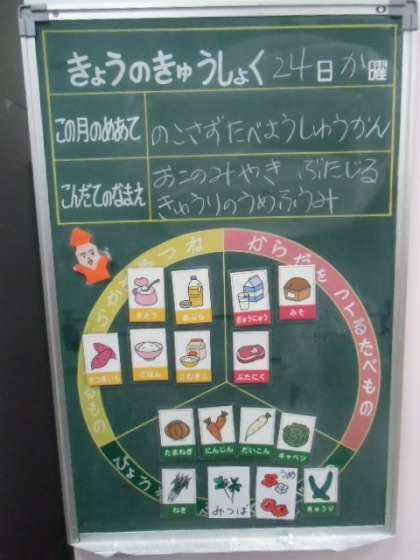 きょうのきゅうしょく 24日か曜
この月のめあて
のこさずたべようしゅうかん
こんだてのなまえ
おこのみやき ぶたじる
きゅうりのうめふうみ
からだをつくるたべもの
さとう
あぶら
ぎゅうにゅう
みそ
さつまいも
ごはん
こむぎこ
ぶたにく
たまねぎ
にんじん
だいこん
キャベツ
ねぎ
みつば
うめ
きゅうり